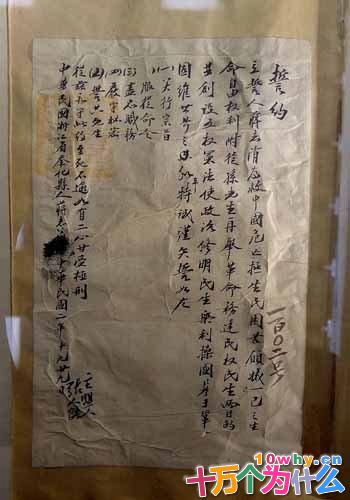 一百〇二号
誓約
立誓人蔣志清為救中國危亡拯生民困苦願犧一己之生
命自由權利附從孫先生再舉革命務達民權民生兩目的
並創設五權憲法使政治修明民生樂利措國基於鞏
固維世界之和平特誠謹矢誓如左
(一)實行宗旨
服從命令
(三)盡忠職務
(四)嚴守秘密
(五)誓共生死
從茲永守此約至死不渝如有二心甘受極刑
中華民國浙江省奉化縣人蔣志
中華民國二年十月廿九日
10why.cn
十万个为什么